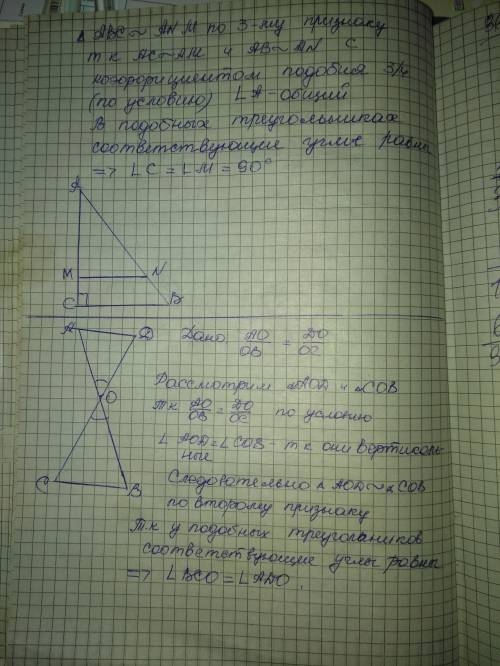 Δ ABC ~ ANM по 3-му признаку
т к AC~AM и AB~AN С
когорфициентом подобия 3/4
(по условию) ∠A-общий
В подобных треугольниках
соответствующие углы равны
=> ∠C = ∠M = 90°
A
M N
C B
A D
Дано AO/OB = DO/OC
O
Рассмотрим ΔAOD и ΔCOB
Тк AO/OB = DO/OC по условию
∠ AOD = ∠COB - т к они вертикаль-
ные
C B
Следовательно Δ AOD ~ Δ COB
по второму признаку
Тк у подобных треуголаников
соответствующие углы равны
=> ∠BCO = ∠ADO.